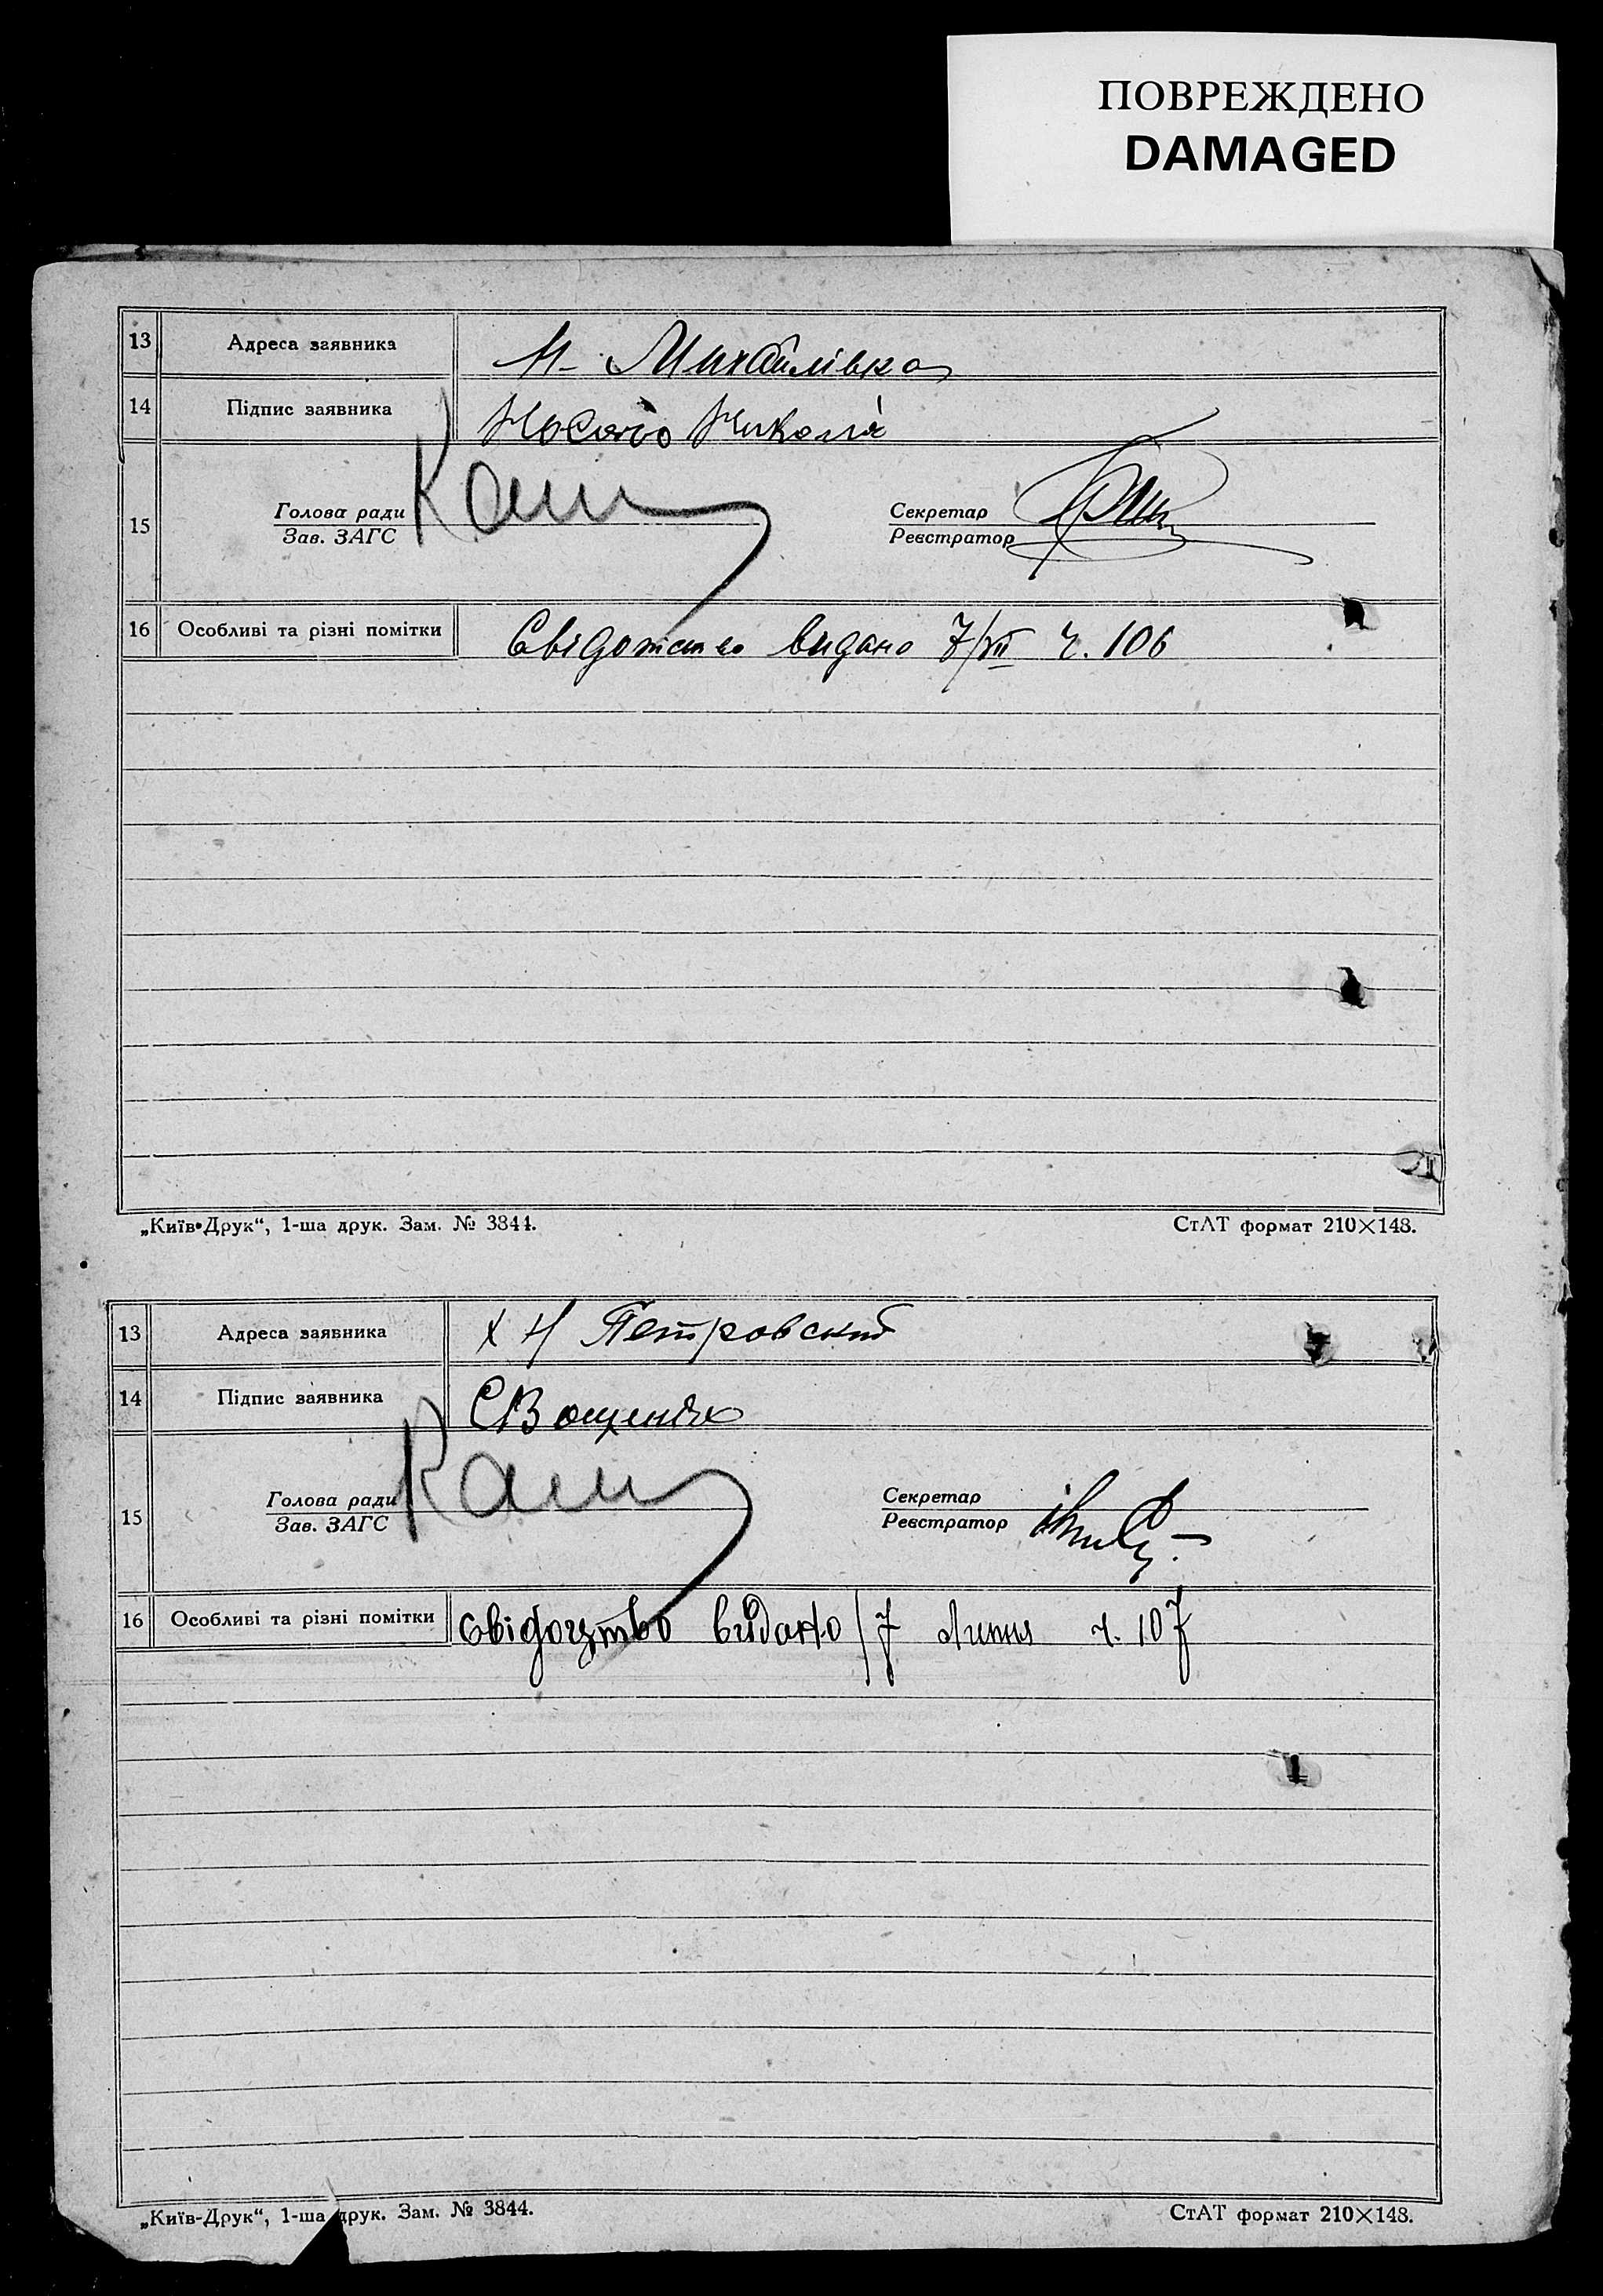 ПОВРЕЖДЕНО
DAMAGED
13 Адреса заявника Н-Михайлівка
14 Підпис заявника
15 Голова ради Секретар
Зав. ЗАГС Реєстратор
16 Особливі та різні помітки Свідотство видано 7/VII ч. 106
„Київ-Друк“, 1-ша друк. Зам. № 3844. СтАТ формат 210×148.
13 Адреса заявника х Н Петровский
14 Підпис заявника
15 Голова ради Секретар
Зав. ЗАГС Реєстратор
16 Особливі та різні помітки свідоцтво видано 7 липня ч. 107
„Київ-Друк“, 1-ша друк. Зам. № 3844. СтАТ формат 210×148.